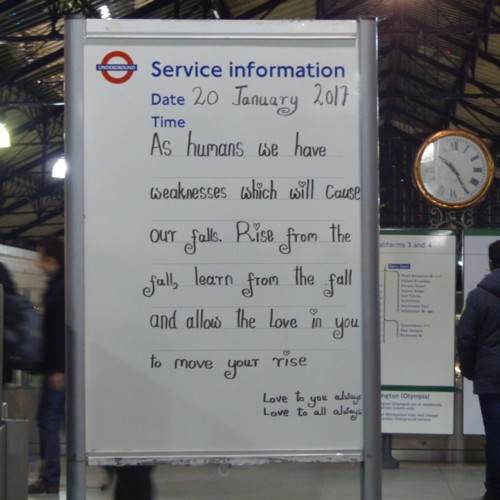 UNDERGROUND
Service information
Date 20 January 2017
Time
As humans we have
weaknesses which will cause
our falls. Rise from the
fall, learn from the fall
and allow the love in you
to move your rise
Love to you always
Love to all always
atforms 3 and 4
ngton (Olympia)